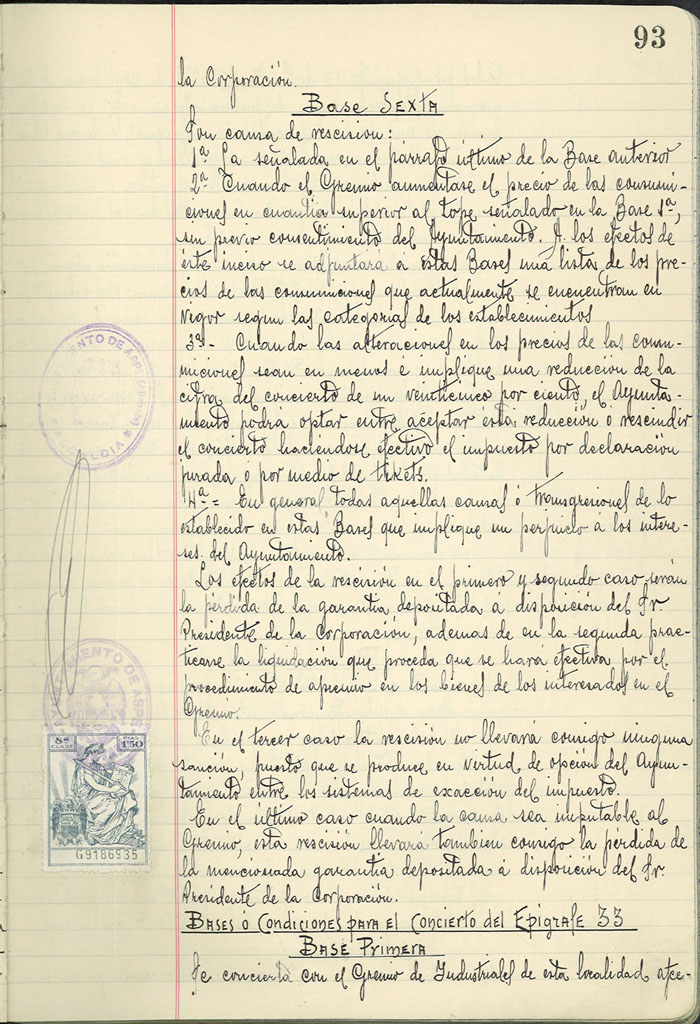 93
la Corporación.
Base Sexta
Son causa de rescisión:
1ª La señalada en el párrafo último de la Base anterior
2ª Cuando el Gremio aumentase el precio de las consumi-
ciones en cuantia superior al tope señalado en la Base 1ª,
sin previo consentimiento del Ayuntamiento. A los efectos de
éste inciso se adjuntará á estas Bases una lista de los pre-
cios de las consumiciones que actualmente se encuentran en
vigor segun las categorias de los establecimientos
3ª- Cuando las alteraciones en los precios de las consu-
miciones sean en menos é implique una reducción de la
cifra del concierto de un veinticinco por ciento, el Ayunta-
miento podrá optar entre aceptar ésta reducción ó rescindir
el concierto haciendose efectivo el impuesto por declaración
jurada ó por medio de tikets.
4ª= En general todas aquellas causas ó transgresiones de lo
establecido en estas Bases que implique un perjuicio á los intere-
ses del Ayuntamiento.
Los efectos de la rescisión en el primero y segundo caso serán
la pérdida de la garantia depositada á disposición del Sr.
Presidente de la Corporación, ademas de en la segunda prac-
ticarse la liquidación que proceda que se hará efectiva por el
procedimiento de apremio en los bienes de los interesados en el
Gremio.
En el tercer caso la rescisión no llevará consigo ninguna
sanción, puesto que se produce en virtud de opción del Ayun-
tamiento entre los sistemas de exacción del impuesto.
En el último caso cuando la causa sea imputable al
Gremio, esta rescisión llevará tambien consigo la pérdida de
la mencionada garantia depositada á disposición del Sr.
Presidente de la Corporación.
Bases ó Condiciones para el Concierto del Epigrafe 33
Base Primera
Se concierta con el Gremio de Industriales de esta localidad afec-
AYUNTAMIENTO DE ASPE
8ª CLASE
PTAS. 1'50
G9186935